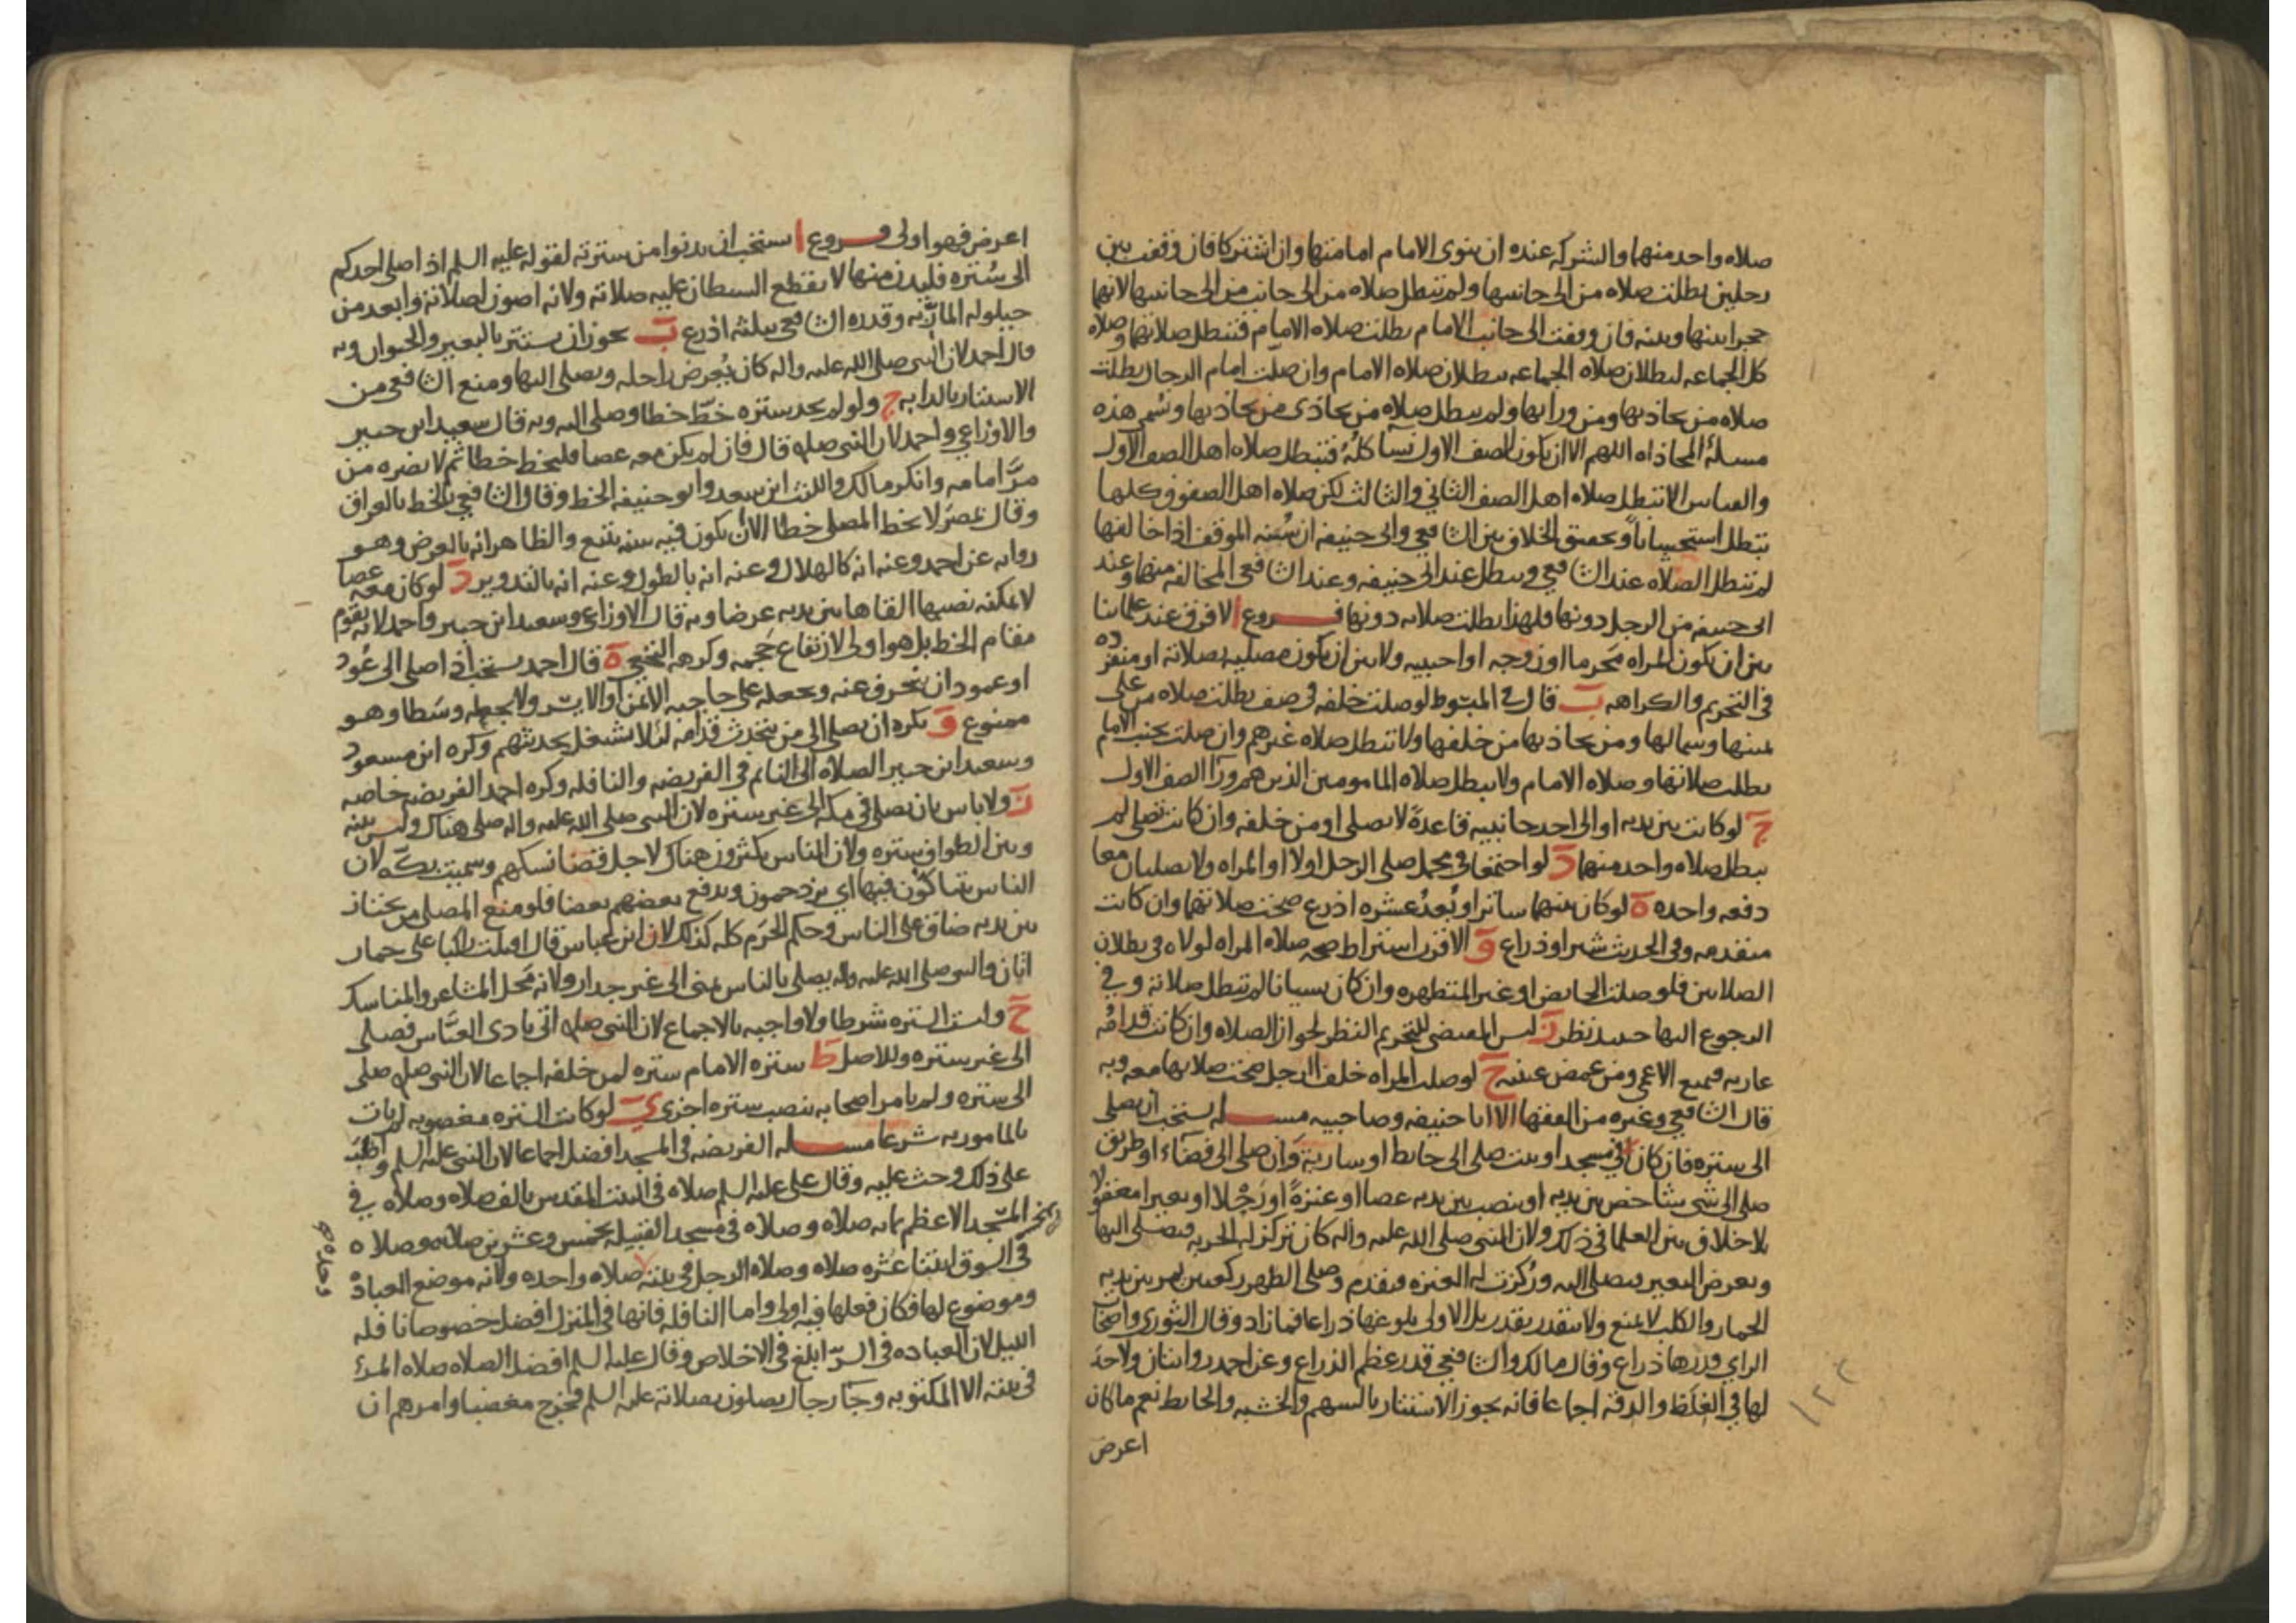 صلاه واحد منهما والشركه عنده ان ينوى الامام امامتها وان اشتركا فان وقفت بين
رجلين بطلت صلاه من الى جانبيها ولم تبطل صلاه من الى جانب من الى جانبيها لانهما
حجزا بينها وبينه فان وقفت الى جانب الامام بطلت صلاه الامام فتبطل صلاتها وصلاه
كل الجماعه لبطلان صلاه الجماعه ببطلان صلاه الامام وان صلت امام الرجال بطلت
صلاه من يحاذيها ومن ورايها ولم يبطل صلاه من يحاذى من يحاذيها وتسمى هذه
مسلة المحاذاه اللهم الا ان يكون الصف الاول نسآ كله فتبطل صلاه اهل الصف الاول
والقياس الا تبطل صلاه اهل الصف الثاني والثالث لكن صلاه اهل الصفوف كلها
تبطل استحسانا وتحقيق الخلاف بين الشافعي وابى حنيفه ان سنه الموقف اذا خالفها
لم تبطل الصلاه عند الشافعي وتبطل عند ابى حنيفه وعند الشافعى المخالفه منهما وعند
ابى حنيفه من الرجل دونها فلهذا بطلت صلاته دونها فروع ا لا فرق عند علمائنا
بين ان يكون المراه محرما او زوجه او اجنبيه ولا بين ان يكون مصليه بصلاته او منفرده
فى التحريم والكراهه ب قال فى المبسوط لو صلت خلفه فى صف بطلت صلاه من على
يمينها وشمالها ومن يحاذيها من خلفها ولا تبطل صلاه غيرهم وان صلت بجنب الامام
بطلت صلاتها وصلاه الامام ولا يبطل صلاه المامومين الذين هم ورآ الصف الاول
ج لو كانت بين يديه او الى احد جانبيه قاعدة لا يصلى او من خلفه وان كانت تصلى لم
يبطل صلاه واحد منهما د لو اجتمعا فى محمل صلى الرجل اولا او المراه ولا يصليان معا
دفعه واحده ه لو كان بينهما ساتر او بُعدُ عشره اذرع صحت صلاتهما وان كانت
متقدمه وفى الحديث شبر او ذراع و الاقرب اشتراط صحه صلاه المراه لولاه فى بطلان
الصلاتين فلو صلت الحايض او غير المتطهره وان كان نسيانا لم تبطل صلاته وفي
الرجوع اليها حينئذ نظر ز ليس المقتضى للتحريم النظر لجواز الصلاه وان كانت قدامه
عاريه فيمنع الاعمى ومن غمض عينيه ح لو صلت المراه خلف الرجل صحت صلاتهما معه وبه
قال الشافعي وغيره من الفقها الا ابا حنيفه وصاحبيه مسله يستحب ان يصلى
الى ستره فان كان فى مسجد او بيت صلى الى حايط او ساريه وان صلى الى فضاء او طريق
صلى الى شى شاخص بين يديه او ينصب بين يديه عصا او عنزةً او رَحْلا او بعيرا معقولا
بلا خلاف بين العلما فى ذلك ولان النبى صلى الله عليه واله كان تركز له الحربه فيصلى اليها
ويعرض البعير فيصلى اليه وركزت له العنزه فتقدم وصلى الظهر ركعتين يمر بين يديه
الحمار والكلب لا يمنع ولا يتقدر بقدر بل الاولى بلوغها ذراعا فما زاد وقال الثورى واصحاب
الراي قدرها ذراع وقال مالك والشافعي قدر عظم الذراع وعن احمد روايتان ولا حد
لها فى الغلظ والدقه اجماعا فانه يجوز الاستتار بالسهم والخشبه والحايط نعم ما كان
اعرض
اعرض فهو اولى فروع ا يستحب ان يدنوا من سترته لقوله عليه السلم اذ اصلى احدكم
الى سُتره فليدن منها لا يقطع الشيطان عليه صلاته ولانه اصون لصلاته وابعد من
حيلوله المآرّ به وقدره الشافعى بثلثه اذرع ب يجوز ان يستتر بالبعير والحيوان وبه
قال احمد لان النبى صلى الله عليه واله كان يُعرض راحله ويصلى اليها ومنع الشافعى من
الاستتار بالدابه ج ولو لم يجد ستره خطّ خطا وصلى اليه وبه قال سعيد ابن جبير
والاوزاعي واحمد لان النبى صله قال فان لم يكن معه عصا فليخط خطا ثم لا يضره من
مرّ امامه وانكره مالك والليث ابن سعد وابو حنيفه الخط وقال الشافعي بالخط بالعراق
وقال بمصر لا يخط المصلى خطا الا ان يكون فيه سنه يتبع والظاهر انه بالعرض وهو
روايه عن احمد وعنه انه كالهلال وعنه انه بالطول وعنه انه بالتدوير د لو كان معه عصا
لا يمكنه نصبها القاها بين يديه عرضا وبه قال الاوزاعى وسعيد ابن جبير واحمد لانه يقوم
مقام الخط بل هو اولى لارتفاع حَجمه وكرهه النخعي ه قال احمد يستحب اذ اصلى الى عُود
او عمود ان ينحرف عنه ويجعله على حاجبه الايمن او الايسر ولا يجعله وسَطا وهو
ممنوع و يكره ان يصلى الى من يتحدث قدامه لئلا يشتغل بحديثهم وكره ابن مسعود
وسعيد ابن جبير الصلاه الى النائم فى الفريضه والنافله وكره احمد الفريضه خاصه
ز ولا باس بان يصلى فى مكه الى غير ستره لان النبى صلى الله عليه واله صلى هناك وليس بينه
وبين الطواف ستره ولان الناس يكثرون هناك لاجل قضا نسكهم وسميت بكّه لان
الناس يتباكّون فيها اي يزدحمون ويدفع بعضهم بعضا فلو منع المصلى من يجتاز
بين يديه ضاق على الناس وحكم الحَرم كله كذلك لان ابن عباس قال اقبلت راكبا على حمار
اتان والنبى صلى الله عليه واله يصلى بالناس بمنى الى غير جدار ولانه مَحل المشاعر والمناسك
ح وليست الستره شرطا ولا واجبه بالاجماع لان النبى صله اتى بادى العبّاس فصلى
الى غير ستره وللاصل ط ستره الامام ستره لمن خلفه اجماعا لان النبى صله صلى
الى ستره ولم يامر اصحابه بنصب ستره اخرى ي لو كانت الستره مغصوبه لم يات
بالمامور به شرعا مسله الفريضه فى المسجد افضل اجماعا لان النبى عليه السلم واظب
على ذلك وحث عليه وقال على عليه السلم صلاه فى البيت المقدس بالف صلاه وصلاه في
المسجد الاعظم بمايه صلاه وصلاه فى مسجد القبيله بخمس وعشرين صلاه وصلاه
فى السوق اثنتا عشره صلاه وصلاه الرجل فى بيته صلاه واحده ولانه موضع العباده
وموضوع لها فكان فعلها فيه اولى واما النافله فانها فى المنزل افضل خصوصا نافله
الليل لان العباده فى السرّ ابلغ فى الاخلاص وقال عليه السلم افضل الصلاه صلاه المرء
فى بيته الا المكتوبه وجآ رجال يصلون بصلاته عليه السلم فخرج مغضبا وامرهم ان